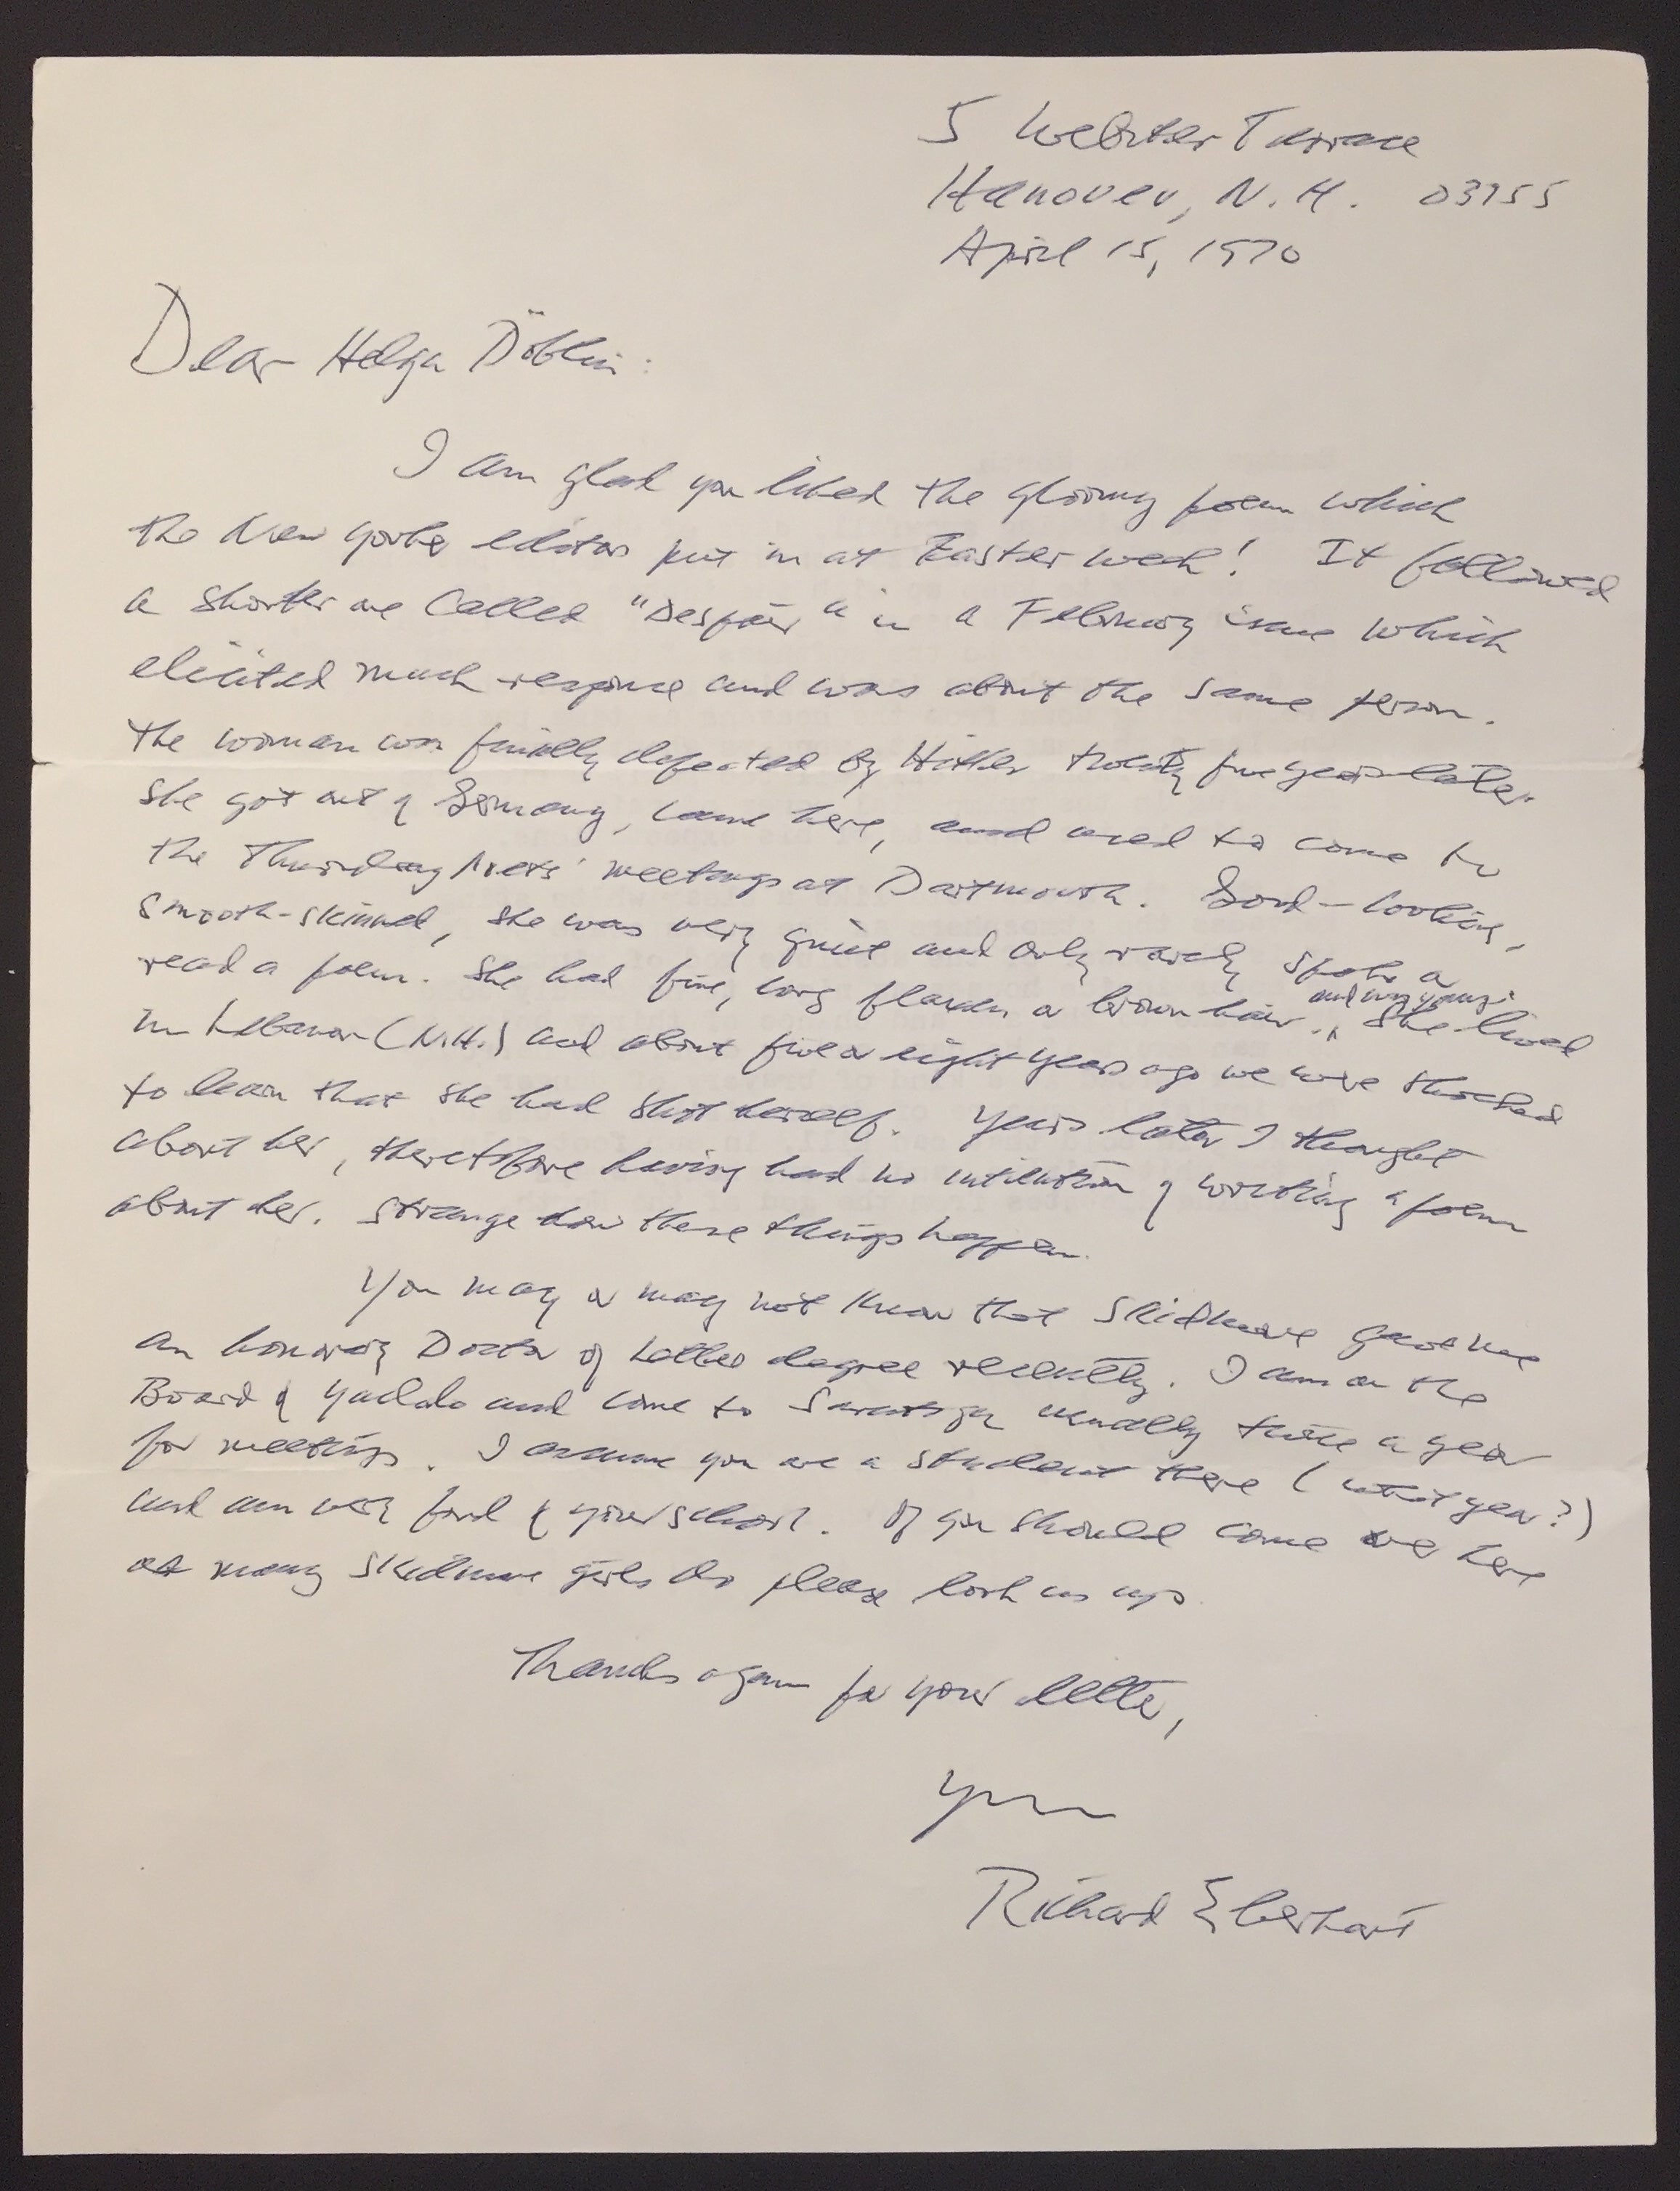 5 Webster Terrace
Hanover, N.H. 03755
April 15, 1970
Dear Helga Döblin:
I am glad you liked the gloomy poem which
the New Yorker editors put in at Easter week! It followed
a shorter one called "Despair" in a February issue which
elicited much response and was about the same person.
The woman was finally defeated by Hitler twenty five years later
She got out of Germany, came here, and used to come to
the Thursday Poets' meetings at Dartmouth. Good-looking,
smooth-skinned, she was very quiet and only rarely spoke or
read a poem. She had fine, long flaxen or brown hair. and was young. She lived
in Lebanon (N.H.) and about five or eight years ago we were shocked
to learn that she had shot herself. Years later I thought
about her, theretofore having had no intention of writing a poem
about her. Strange how these things happen.
You may or may not know that Skidmore gave me
an honorary Doctor of Letters degree recently. I am on the
Board of Yaddo and come to Saratoga usually twice a year
for meetings. I assume you are a student there (what year?)
and am very fond of your school. If you should come over here
as many Skidmore girls do please look us up.
Thanks again for your letter,
Yours
Richard Eberhart